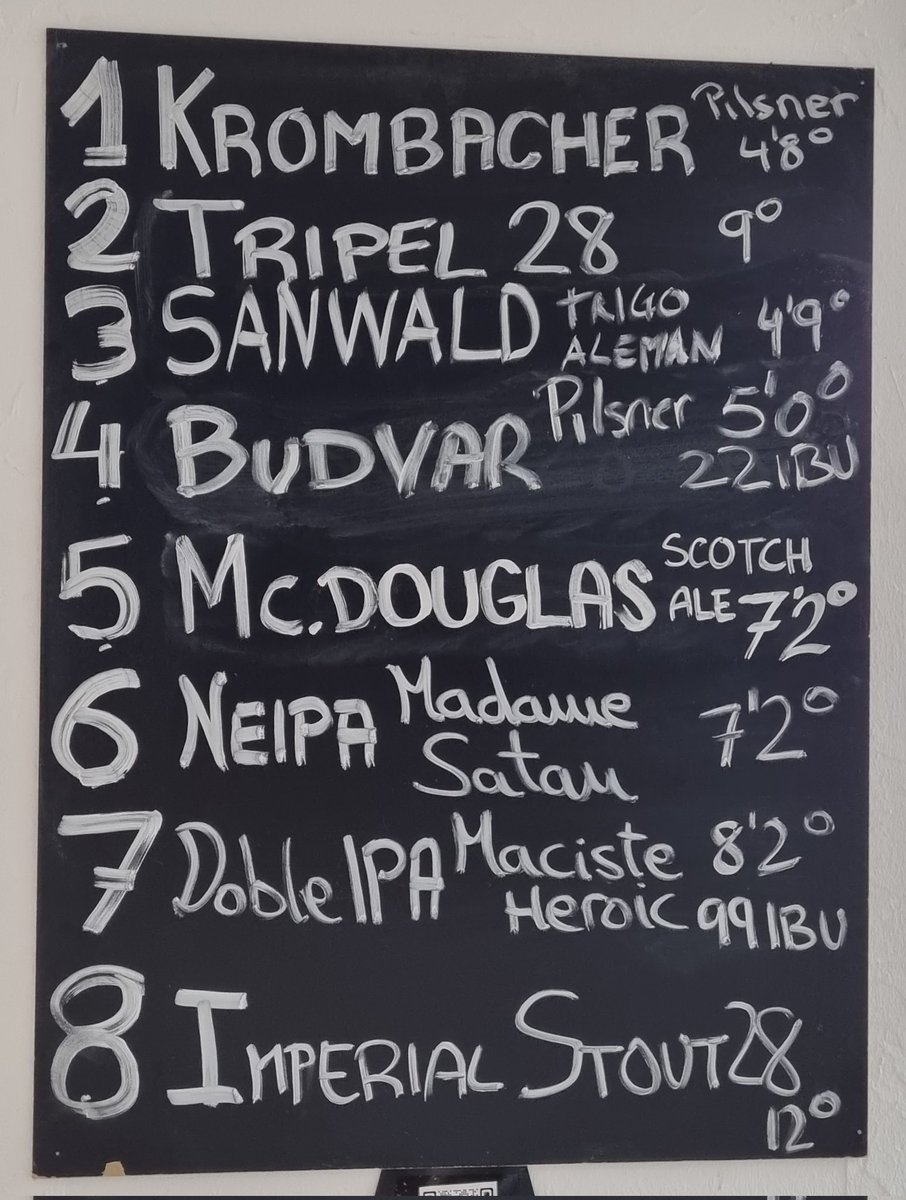 1 KROMBACHER Pilsner 4'8°
2 TRIPEL 28 9°
3 SANWALD TRIGO ALEMAN 4'9°
4 BUDVAR Pilsner 5'0° 22 IBU
5 Mc.DOUGLAS SCOTCH ALE 7'2°
6 NEIPA Madame Satan 7'2°
7 Doble IPA Maciste Heroic 8'2° 99 IBU
8 IMPERIAL STOUT 28 12°